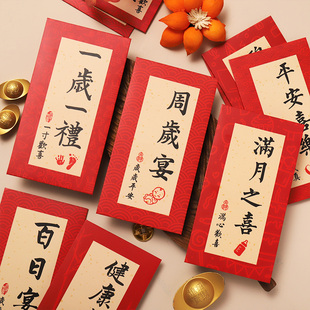 一歲一禮
一寸歡喜
周歲宴
歲歲平安
滿月之喜
滿心歡喜
平安喜樂
百日宴
健康